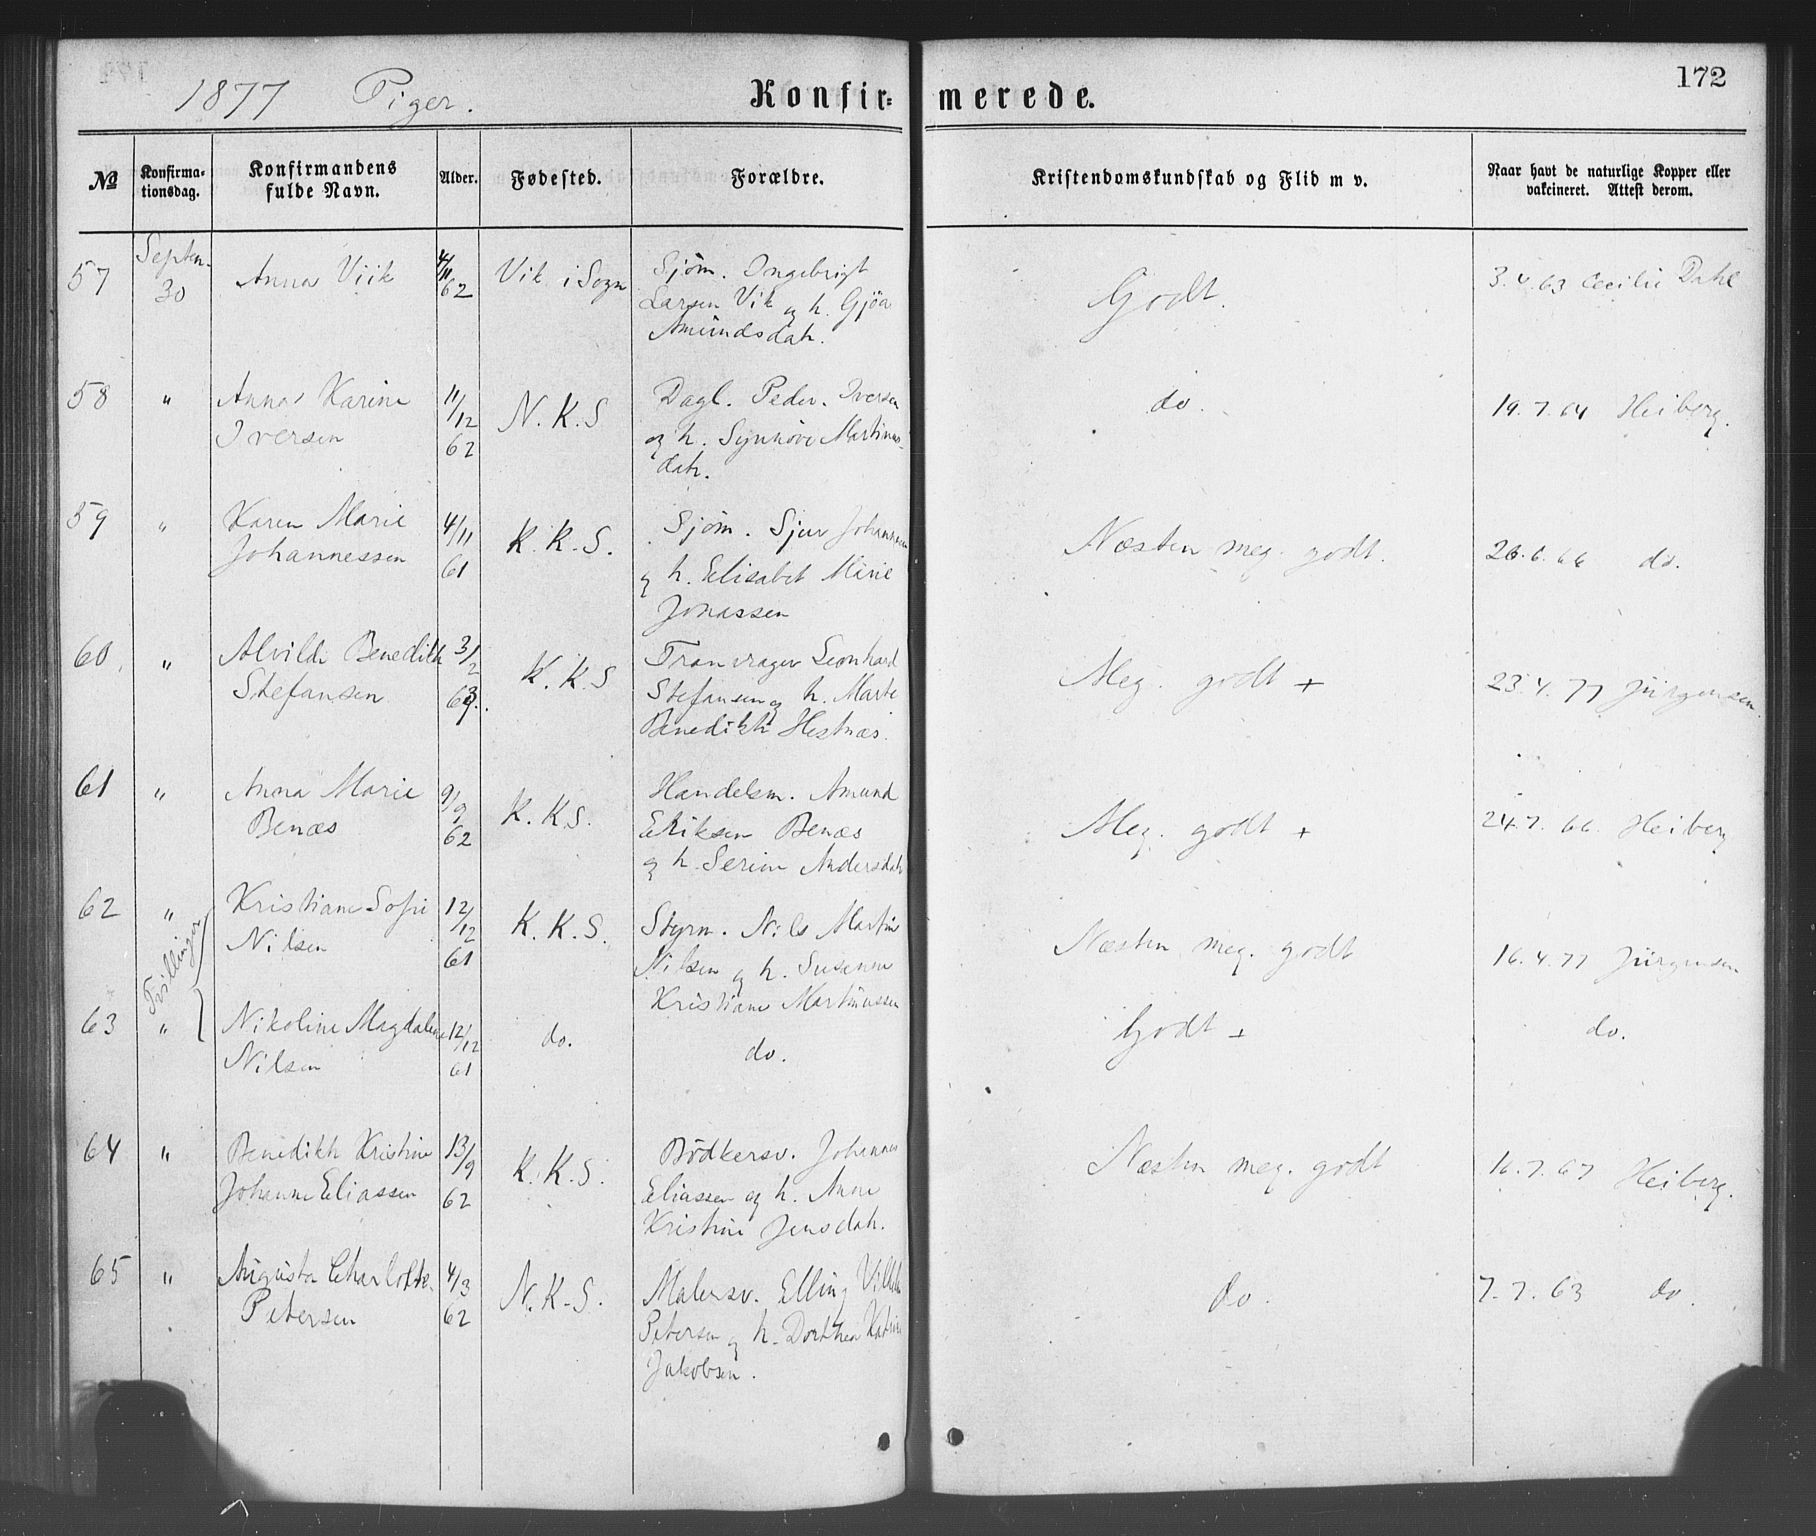 172
1877 Piger.
Konfir=merede.
№
Konfirma-
tionsdag.
Konfirmandens
fulde Navn.
Alder.
Fødested.
Forældre.
Kristendomskundskab og Flid m v.
Naar havt de naturlige Kopper eller
vakcineret. Attest derom.
57 Septem. Anna Viik 4/11 Vik i Sogn Sjøm. Ingebrigt Godt. 3.4.63 Cecilie Dahl
30 62 Larsen Vik og h. Gjøa
Amundsdatr.
58 " Anna Karine 11/12 N.K.S Dagl. Peder Iversen do. 19.7.64 Heiberg.
Iversen 62 og h. Synnøve Martinus-
datr.
59 " Karen Marie 4/11 K.K.S. Sjøm. Sjur Johannesen Næsten meg. godt. 26.6.66 do.
Johannessen 61 og h. Elisabet Marie
Jonassen
60 " Alvilde Benedikte 3/2 K.K.S Tranvrager Leonhard Meg. godt + 23.4.77 Jürgensen
Stefansen 63 Stefansen og h. Marte
Benedikte Hestnæs.
61 " Anna Marie 9/9 K.K.S. Handelsm. Amund Meg. godt + 24.7.66. Heiberg
Benæs 62 Eriksen Benæs
og h. Serine Andersdatr
62 " Kristiane Sofie 12/12 K.K.S. Styrm. Nils Martin Næsten meg. godt 16.4.77 Jürgensen
Nilsen 61 Nilsen og h. Susanne
Kristiane Martinussen
Tvillinger
63 " Nikoline Magdalene 12/12 do. do. Godt + do.
Nilsen 61
64 " Benedikte Kristine 13/9 K.K.S. Bødkersv. Johannes Næsten meg. godt 16.7.67 Heiberg.
Johanne Eliassen 62 Eliassen og h. Anne
Kristine Jensdatr.
65 " Augusta Charlotte 4/3 N.K.S. Malersv. Elling Vilhelm do. 7.7.63 do.
Petersen 62 Petersen og h. Dorthea Katrine
Jakobsen.